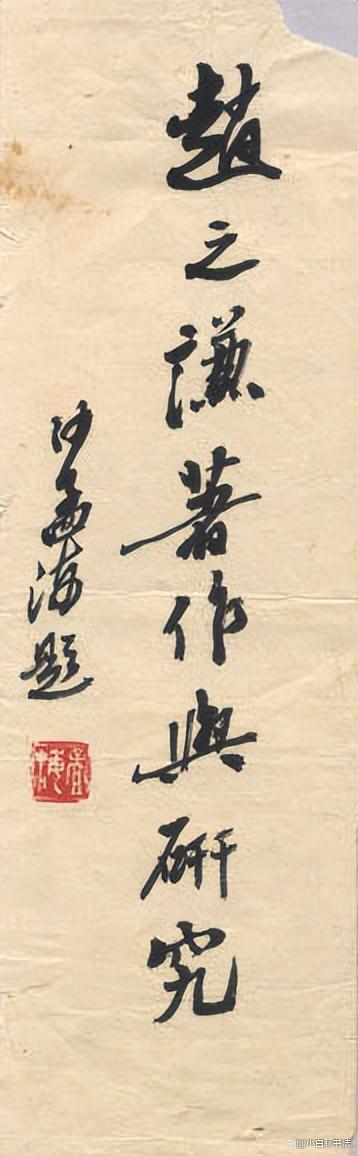 趙之謙著作與研究
沙孟海題
孟海
@小白訴书法